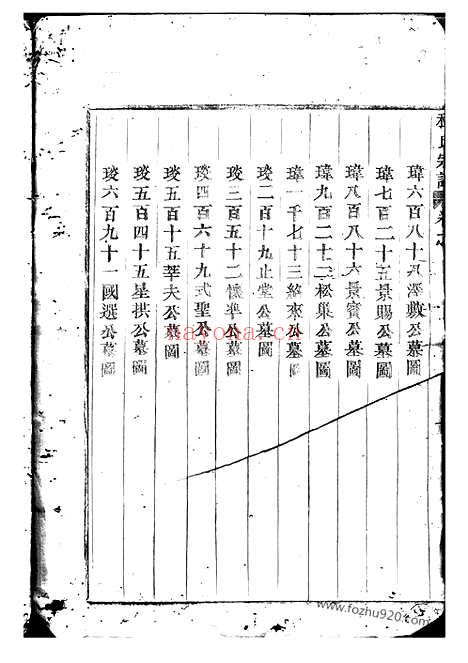 氏宗譜
瑋六百八十公墓圖
瑋七百二十五景賜公墓圖
瑋八百八十六景賓公墓圖
瑋九百二十二松巢公墓圖
瑋一千七十三終來公墓圖
琰二百一十九止堂公墓圖
琰三百五十二懷準公墓圖
琰四百六十九式聖公墓圖
琰五百十五莘夫公墓圖
琰五百四十五星拱公墓圖
琰六百九十一國選公墓圖
navona.cn
www.fozhu920.com